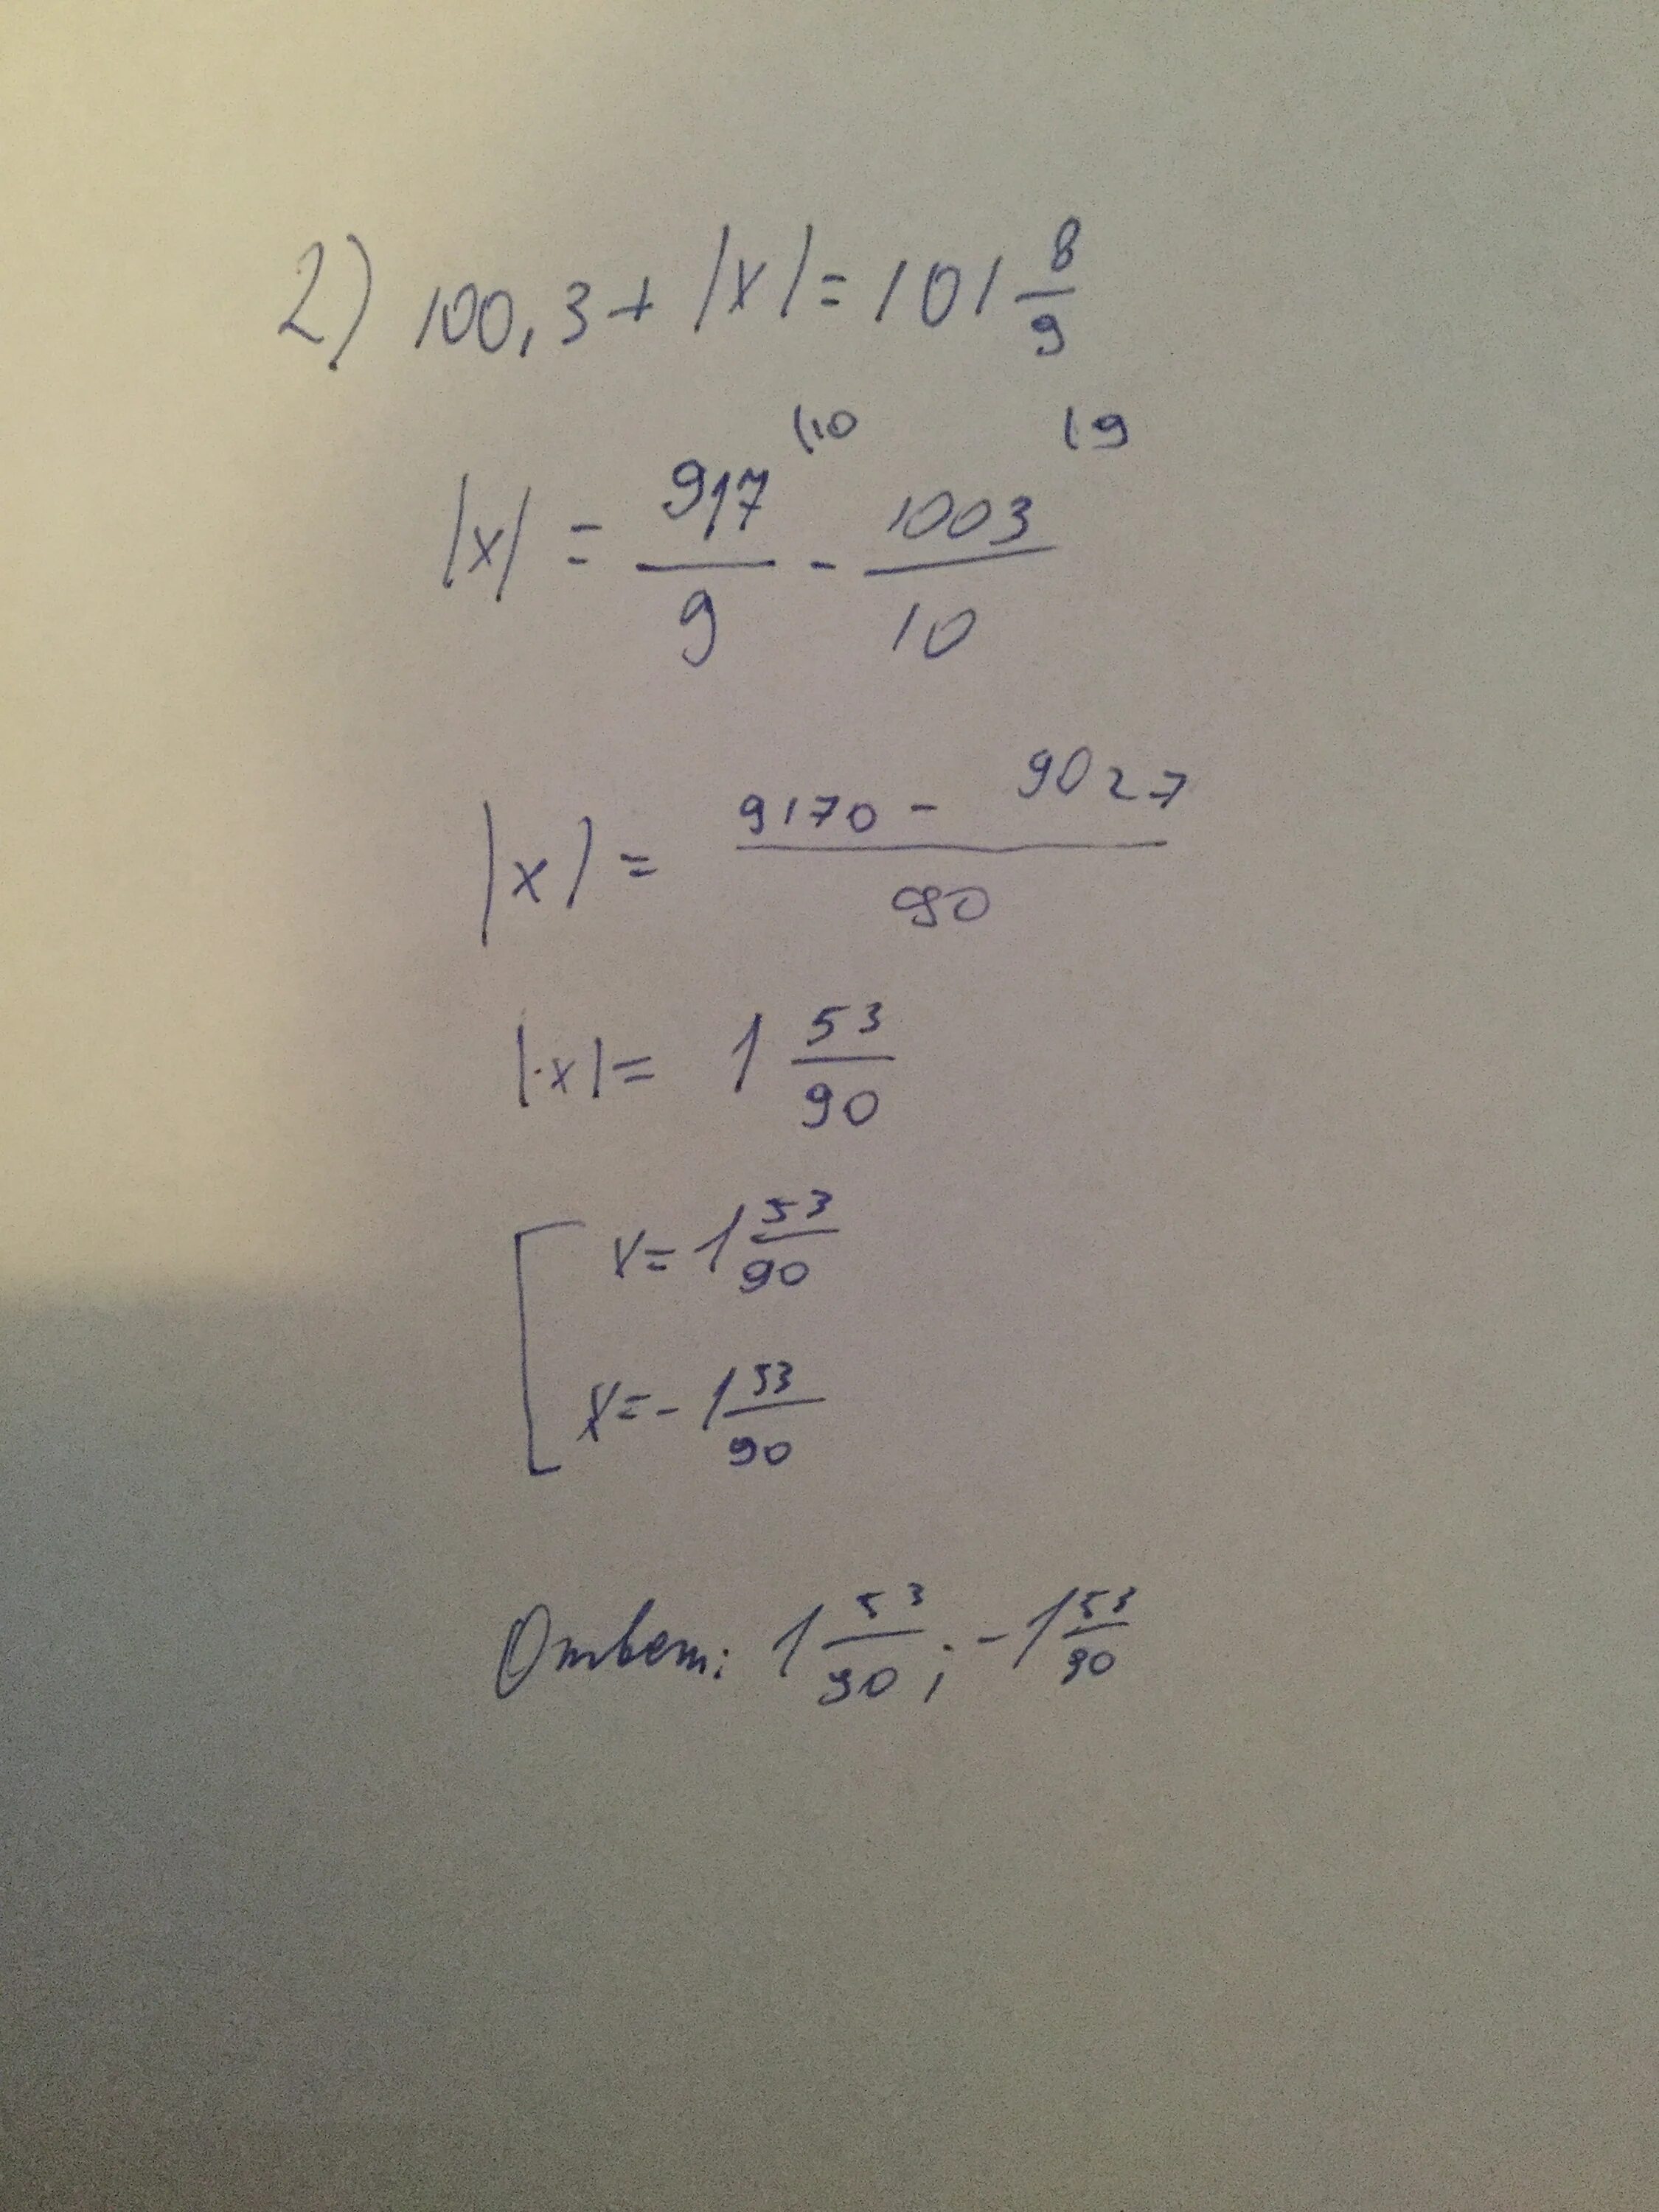 2) 100,3 + |x| = 101 8/9
|x| = 917/9 (10 - 1003/10 (9
|x| = (9170 - 9027)/90
|x| = 1 53/90
[ x = 1 53/90
x = -1 53/90
Ответ: 1 53/90 ; -1 53/90